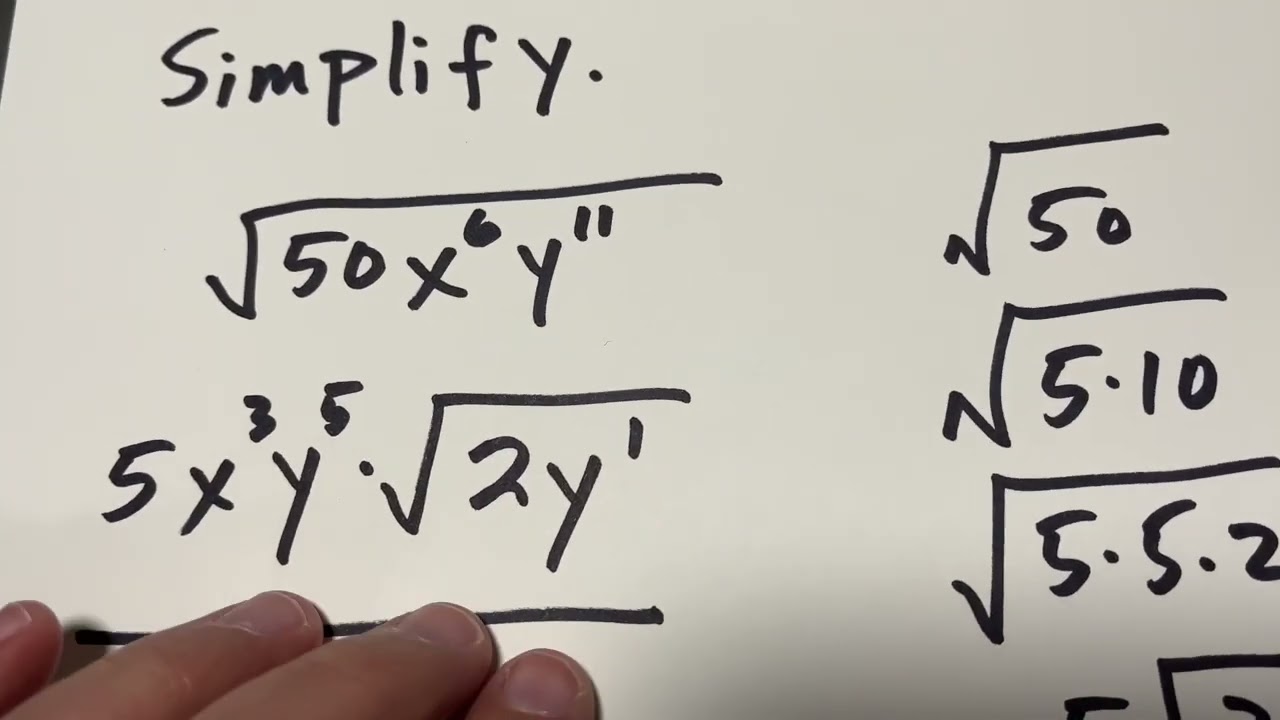 Simplify.
√50x⁶y¹¹
5x³y⁵·√2y¹
√50
√5·10
√5·5·2
5√2